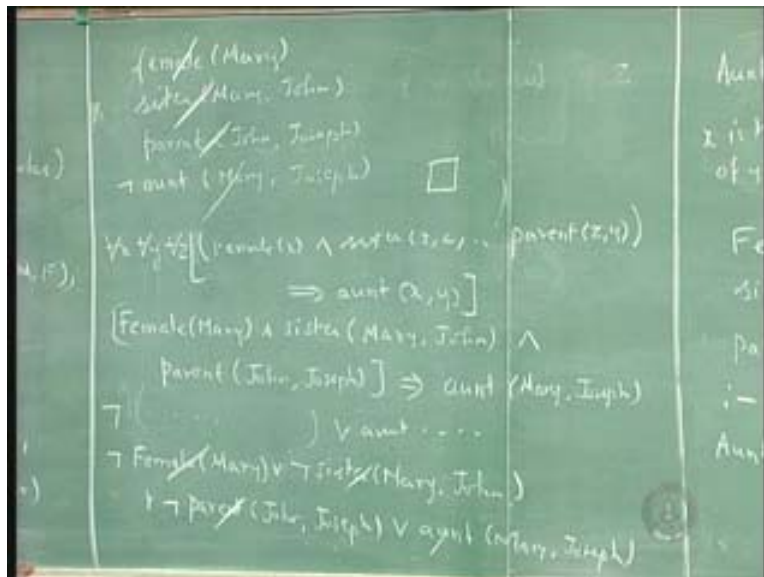 female (Mary)
sister (Mary, John)
parent (John, Joseph)
¬ aunt (Mary, Joseph) □
∀x ∀y ∀z [(Female(x) ∧ sister(x,z) parent(z,y))
⇒ aunt (x,y)]
[Female(Mary) ∧ sister (Mary, John) ∧
parent (John, Joseph)] ⇒ aunt (Mary, Joseph)
¬ ( ) ∨ aunt ....
¬ Female(Mary) ∨ ¬ sister (Mary, John)
∨ ¬ parent (John, Joseph) ∨ aunt (Mary, Joseph)
Aunt
x is
of y
Fe
si
pa
:-
Aun